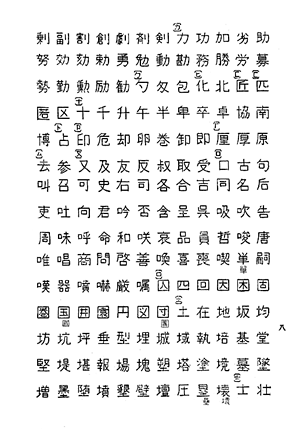 剰副割創劇剤剣力功加劣助
努効劾勅勇勉動勘務勝労募
勢勤勲励勧勺匁包化北匠匹
匿区十千升午半卑卒卓協南
博占印危却卵巻卸即厘厚原
去参又及友反叔取受口古句
叫召可史右司各合吉同名后
吏吐向君吟否含呈呉吸吹告
周味呼命和咲哀品員哲唆唐
唯唱商問啓善喚喜喪喫単嗣
嘆器噴嚇厳嘱囚四回因困固
圏国囲園円図団土在地坂均
坊坑坪垂型埋城域執培基堂
堅堤堪報場塊塑塔塗境墓墜
増墨堕墳墾壁壇圧塁壊士壮
八